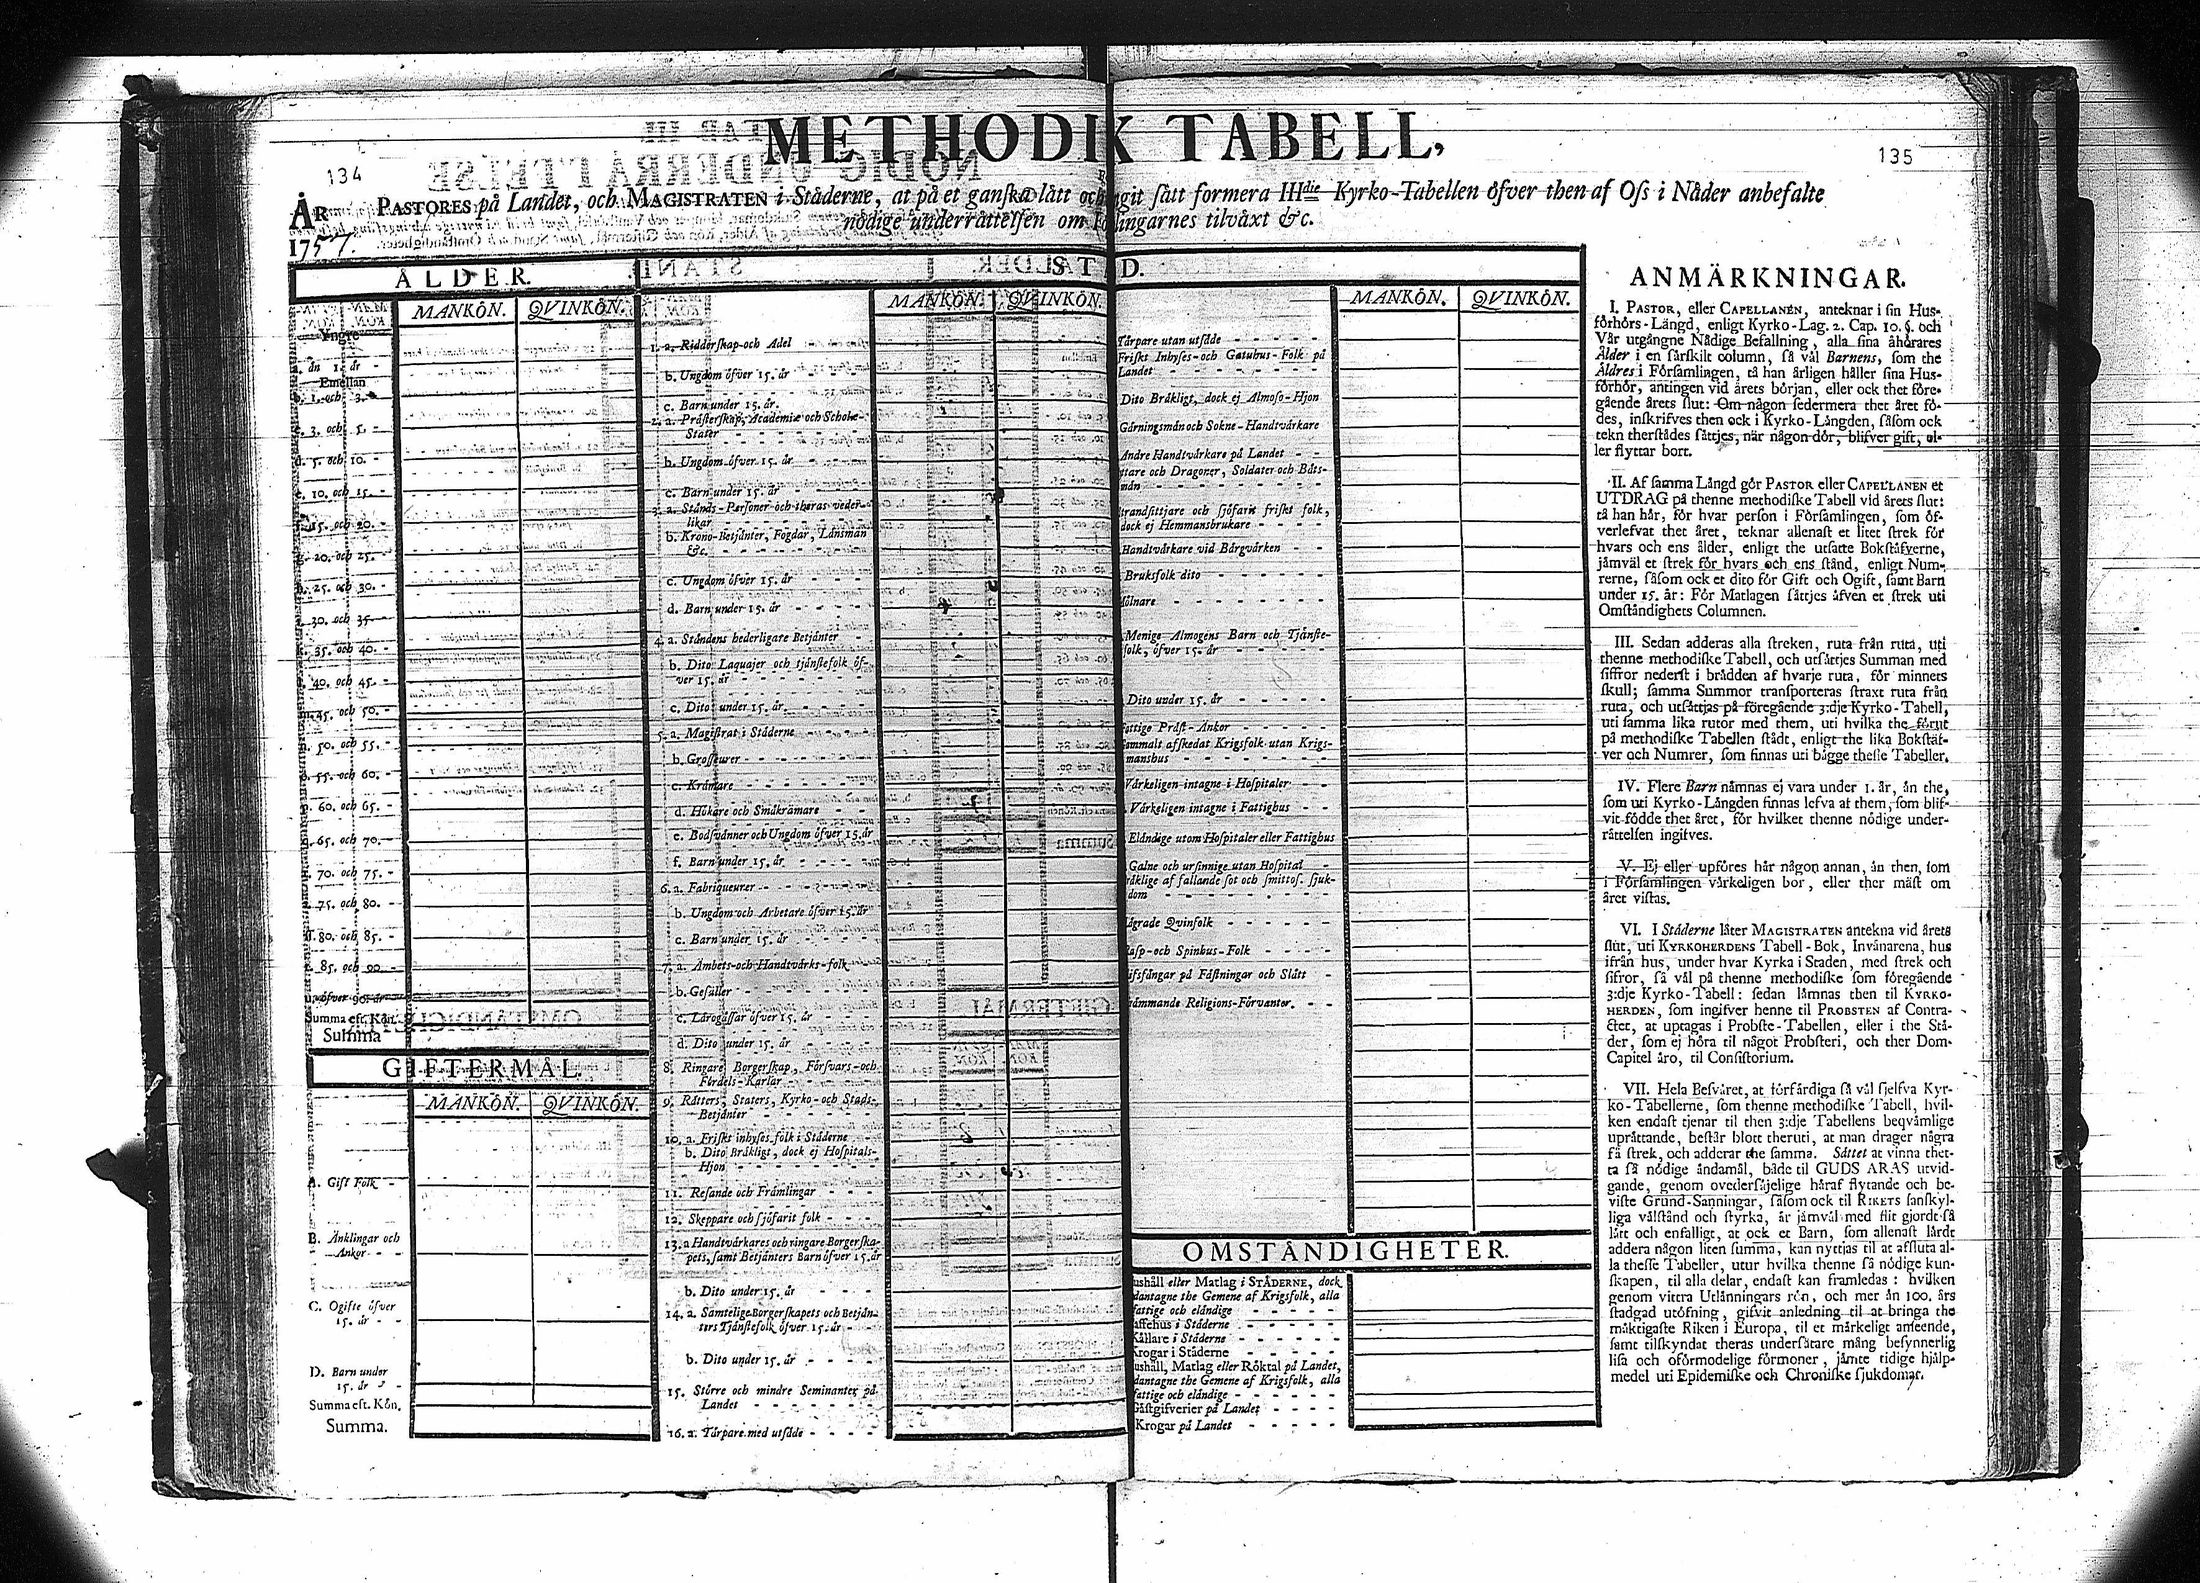 METHODIK TABELL,
134
135
ÅR
1757.
PASTORES på Landet, och MAGISTRATEN i Ståderne, at på et ganska lått och sått formera IIIdie Kyrko-Tabellen öfver then af Oss i Nåder anbefalte
nödige underråttelsen om tilvåxt &c.
ÅLDER.
MANKÖN. QVINKÖN.
Yngre
ån 1. år -
Emellan
b. 1. och 3.
c. 3. och 5. -
d. 5. och 10. -
e. 10. och 15. -
f. 15. och 20. -
g. 20. och 25. -
h. 25. och 30. -
30. och 35.
35. och 40. -
40. och 45. -
m. 45. och 50. -
n. 50. och 55. -
o. 55. och 60. -
p. 60. och 65. -
65. och 70. -
70. och 75. -
75. och 80. -
80. och 85. -
85. och 90. -
öfver 90. år
Summa eft. Kön.
Summa
GIFTERMÅL.
MANKÖN. QVINKÖN.
A. Gift Folk -
B. Änklingar och
Änkor - -
C. Ogifte öfver
15. år - -
D. Barn under
15. år - -
Summa eft. Kön.
Summa.
STÅND.
MANKÖN. QVINKÖN.
1. a. Ridderskap och Adel - - -
b. Ungdom öfver 15. år - - -
c. Barn under 15. år. - - -
2. a. Pråsterskap, Academiæ och Scholæ-
Stater - - - - -
b. Ungdom öfver 15. år - - -
c. Barn under 15. år - - -
3. a. Stånds-Personer och theras veder-
likar - - - - -
b. Krono-Betjånter, Fogdar, Lånsmån
&c. - - - - -
c. Ungdom öfver 15. år - - -
d. Barn under 15. år - - -
4. a. Ståndens hederligare Betjånter -
b. Dito Laquajer och tjånstefolk öf-
ver 15. år - - - - -
c. Dito under 15. år. - - - -
5. a. Magistrat i Ståderne - - -
b. Grosseurer - - - - -
c. Kråmare - - - - -
d. Hökare och Småkråmare
e. Bodsvånner och Ungdom öfver 15. år
f. Barn under 15. år - - -
6. a. Fabriqueurer - - - - -
b. Ungdom och Arbetare öfver 15. år
c. Barn under 15. år - - -
7. a. Åmbets- och Handtvårks-folk
b. Gesåller - - - - -
c. Lårogåssar öfver 15. år - -
d. Dito under 15. år - - -
8. Ringare Borgerskap, Försvars- och
Fördels-Karlar - - - -
9. Råtters, Staters, Kyrko- och Stads-
Betjånter - - - - -
10. a. Friskt inhyses folk i Ståderne -
b. Dito Bråkligt, dock ej Hospitals-
Hjon - - - - -
11. Resande och Fråmlingar - - -
12. Skeppare och sjöfarit folk - - -
13. a Handtvårkares och ringare Borgerska-
pets, samt Betjånters Barn öfver 15. år
b. Dito under 15. år - - -
14. a. Samtelige Borgerskapets och Betjån-
ters Tjånstefolk öfver 15. år -
b. Dito under 15. år - - - -
15. Större och mindre Seminanter på
Landet - - - - -
16. a. Tårpare med utsåde - - - -
MANKÖN. QVINKÖN.
Tårpare utan utsåde - - - -
Friskt Inhyses- och Gatuhus-Folk på
Landet - - - - - -
Dito Bråkligt, dock ej Almoso-Hjon
Gårningsmån och Sokne-Handtvårkare
Andre Handtvårkare på Landet - -
och Dragoner, Soldater och Båts-
mån - - - - - -
och sjöfarit friskt folk,
dock ej Hemmansbrukare - - -
Handtvårkare vid Bårgvårken - -
Bruksfolk dito - - - - -
- - - - - -
Menige Almogens Barn och Tjånste-
folk, öfver 15. år - - - -
Dito under 15. år - - - -
Pråst-Ånkor - - - -
afskedat Krigsfolk utan Krigs-
manshus - - - - -
Vårkeligen intagne i Hospitaler - -
Vårkeligen intagne i Fattighus - -
Elåndige utom Hospitaler eller Fattighus
Galne och ursinnige utan Hospital -
af fallande sot och smittos. sjuk-
dom - - - - -
Qvinfolk - - - -
och Spinhus-Folk - - - -
på Fåstningar och Slått -
Religions-Förvanter. - -
OMSTÅNDIGHETER.
eller Matlag i STÅDERNE, dock
the Gemene af Krigsfolk, alla
fattige och elåndige - - - -
i Ståderne - - - - -
Kållare i Ståderne - - - - -
Krogar i Ståderne - - - - -
Matlag eller Röktal på Landet,
the Gemene af Krigsfolk, alla
fattige och elåndige - - - -
Gåstgifverier på Landet - - - -
Krogar på Landet - - - - -
ANMÄRKNINGAR.
I. PASTOR, eller CAPELLANEN, anteknar i sin Hus-
förhörs-Längd, enligt Kyrko-Lag. 2. Cap. 10. §. och
Vår utgångne Nådige Befallning, alla sina åhörares
Ålder i en sårskilt column, så vål Barnens, som the
Åldres i Församlingen, tå han årligen håller sina Hus-
förhör, antingen vid årets början, eller ock thet före-
gående årets slut: Om någon sedermera thet året fö-
des, inskrifves then ock i Kyrko-Långden, såsom ock
tekn therstådes såttjes, når någon dör, blifver gift, el-
ler flyttar bort.
II. Af samma Långd gör PASTOR eller CAPELLANEN et
UTDRAG på thenne methodiske Tabell vid årets slut:
tå han hår, för hvar person i Församlingen, som öf-
verlefvat thet året, teknar allenast et litet strek för
hvars och ens ålder, enligt the utsatte Bokståfverne,
jåmvål et strek för hvars och ens stånd, enligt Num-
rerne, såsom ock et dito för Gift och Ogift, samt Barn
under 15. år: För Matlagen såttjes åfven et strek uti
Omståndighets Columnen.
III. Sedan adderas alla streken, ruta från ruta, uti
thenne methodiske Tabell, och utsåttjes Summan med
siffror nederst i brådden af hvarje ruta, för minnets
skull; samma Summor transporteras straxt ruta från
ruta, och utsåttjas på föregående 3:dje Kyrko-Tabell,
uti samma lika rutor med them, uti hvilka the förut
på methodiske Tabellen stådt, enligt the lika Bokståf-
ver och Numrer, som finnas uti bågge thesse Tabeller.
IV. Flere Barn nåmnas ej vara under 1. år, ån the,
som uti Kyrko-Långden finnas lefva at them, som blif-
vit födde thet året, för hvilket thenne nödige under-
råttelsen ingifves.
V. Ej eller upföres hår någon annan, ån then, som
i Församlingen vårkeligen bor, eller ther måst om
året vistas.
VI. I Ståderne låter MAGISTRATEN antekna vid årets
slut, uti KYRKOHERDENS Tabell-Bok, Invånarena, hus
ifrån hus, under hvar Kyrka i Staden, med strek och
sifror, så vål på thenne methodiske som föregående
3:dje Kyrko-Tabell: sedan låmnas then til KYRKO-
HERDEN, som ingifver henne til PROBSTEN af Contra-
ctet, at uptagas i Probste-Tabellen, eller i the Ste-
der, som ej höra til något Probsteri, och ther Dom-
Capitel åro, til Consistorium.
VII. Hela Besvåret, at förfårdiga så vål sjelfva Kyr-
ko-Tabellerne, som thenne methodiske Tabell, hvil-
ken endast tjenar til then 3:dje Tabellens beqvåmlige
upråttande, består blott theruti, at man drager några
få strek, och adderar the samma. Såttet at vinna thet-
ta så nödige åndamål, både til GUDS ÅRAS utvid-
gande, genom ovedersåjelige håraf flytande och be-
viste Grund-Sanningar, såsom ock til RIKETS sanskyl-
liga vålstånd och styrka, år jåmvål med flit gjordt så
lått och enfalligt, at ock et Barn, som allenast lårdt
addera någon liten summa, kan nyttjas til at afsluta al-
la thesse Tabeller, utur hvilka thenne så nödige kun-
skapen, til alla delar, endast kan framledas: hvilken
genom vittra Utlånningars rön, och mer ån 100. års
stadgad utöfning, gifvit anledning til at bringa the
måktigaste Riken i Europa, til et mårkeligt anseende,
samt tilskyndat theras undersåtare mång besynnerlig
lisa och oförmodelige förmoner, jåmte tidige hjålp-
medel uti Epidemiske och Chroniske sjukdomar.